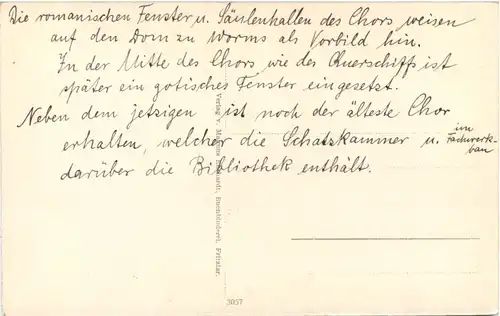 Die romanischen Fenster u. Säulenhallen des Chors weisen
auf den Dom zu Worms als Vorbild hin.
In der Mitte des Chors wie des Querschiffs ist
später ein gotisches Fenster eingesetzt.
Neben dem jetzigen ist noch der älteste Chor
erhalten, welcher die Schatzkammer u. im Fachwerk-
bau
darüber die Bibliothek enthält.
Verlag v. Buchbinderei, Fritzlar.
3057